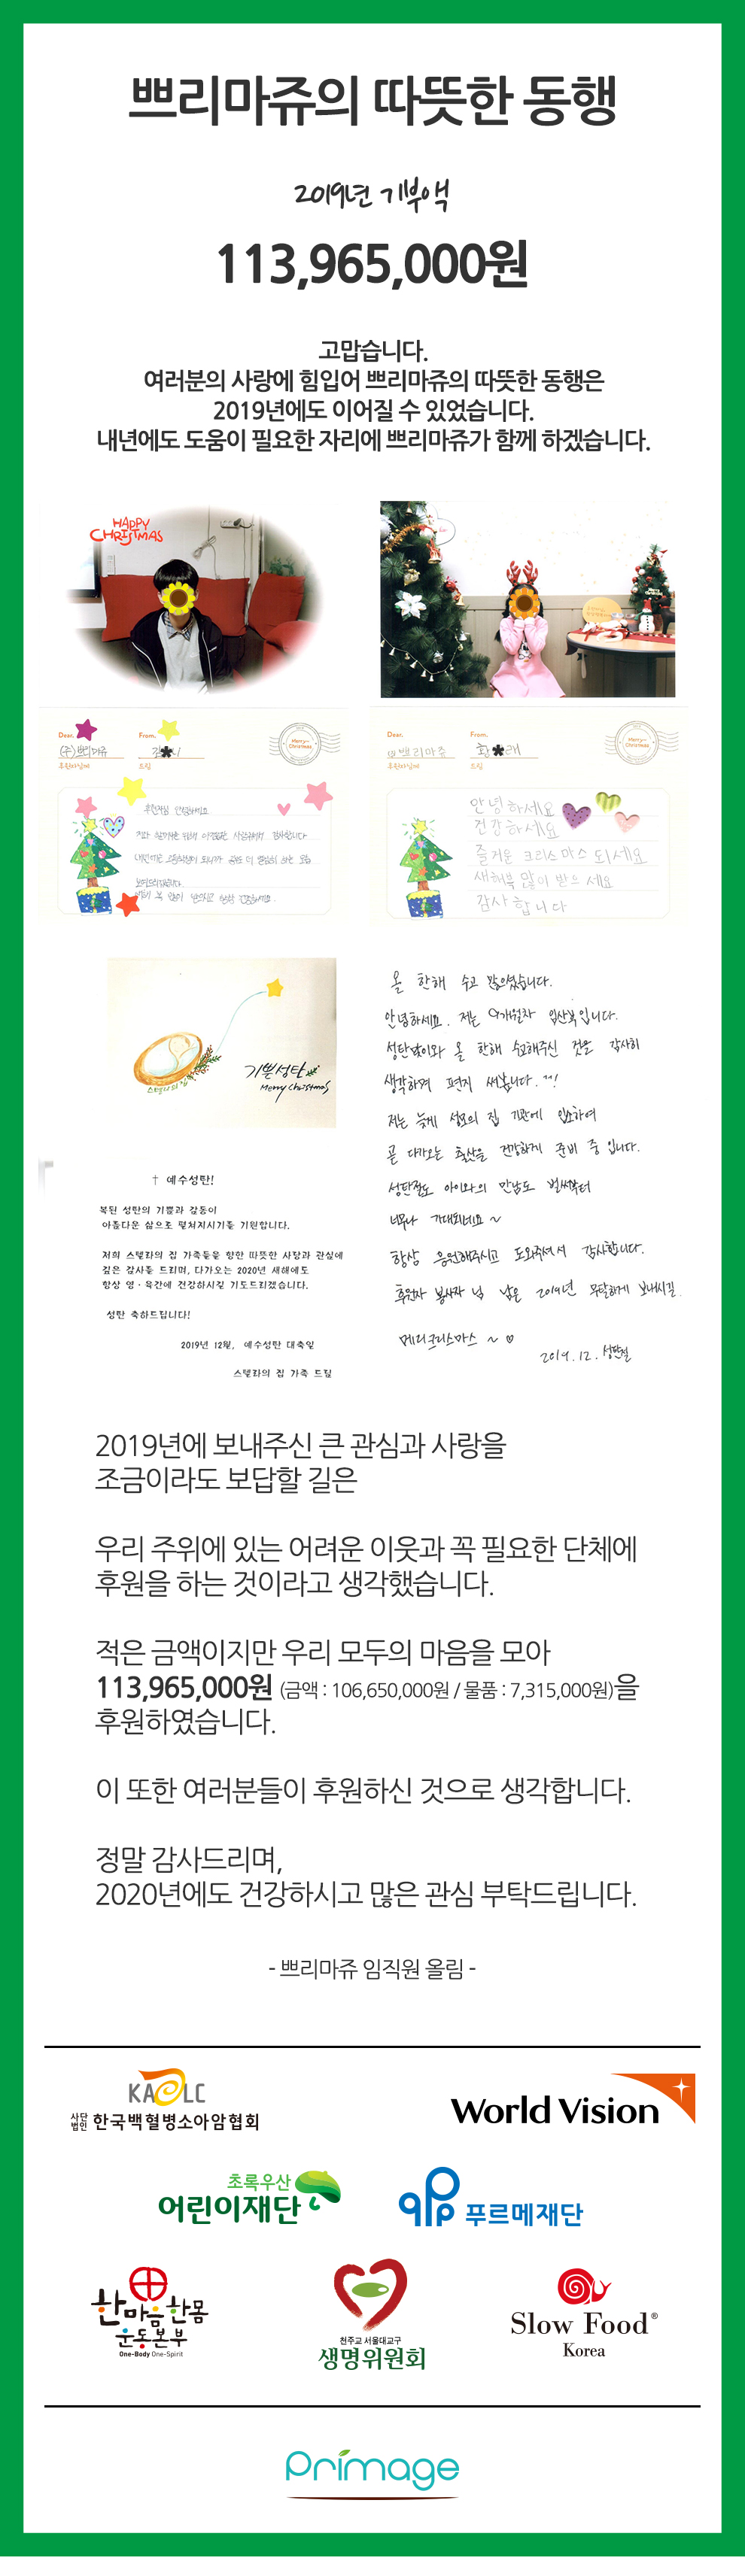 쁘리마쥬의 따뜻한 동행
2019년 기부액
113,965,000원
고맙습니다.
여러분의 사랑에 힘입어 쁘리마쥬의 따뜻한 동행은
2019년에도 이어질 수 있었습니다.
내년에도 도움이 필요한 자리에 쁘리마쥬가 함께 하겠습니다.
HAPPY
CHRISTMAS
Dear.
From.
(주)쁘리마쥬
후원자님께
드림
Merry Christmas
후원자님 안녕하세요
Dear.
From.
쁘리마쥬
후원자님께
드림
Merry Christmas
안녕하세요
건강하세요
즐거운 크리스마스 되세요
새해복 많이 받으세요
감사합니다
기쁜성탄
Merry Christmas
스텔라의 집
† 예수성탄!
복된 성탄의 기쁨과 감동이
아름다운 삶으로 펼쳐지시기를 기원합니다.
저희 스텔라의 집 가족들을 향한 따뜻한 사랑과 관심에
깊은 감사를 드리며, 다가오는 2020년 새해에도
항상 영 · 육간에 건강하시길 기도드리겠습니다.
성탄 축하드립니다!
2019년 12월, 예수성탄 대축일
스텔라의 집 가족 드림
올 한해 수고 많으셨습니다.
안녕하세요. 저는 9개월차 임산부입니다.
성탄맞이와 올 한해 수고해주신 것을 감사히
생각하며 편지 써봅니다.^^!
저는 늦게 성모의 집 기관에 입소하여
곧 다가오는 출산을 건강하게 준비 중 입니다.
성탄절도 아이와의 만남도 벌써부터
너무나 기대되네요 ~
항상 응원해주시고 도와주셔서 감사합니다.
후원자 봉사자 님 남은 2019년 무탈하게 보내시길.
메리크리스마스 ~ ♡
2019. 12. 성탄절
2019년에 보내주신 큰 관심과 사랑을
조금이라도 보답할 길은
우리 주위에 있는 어려운 이웃과 꼭 필요한 단체에
후원을 하는 것이라고 생각했습니다.
적은 금액이지만 우리 모두의 마음을 모아
113,965,000원 (금액 : 106,650,000원 / 물품 : 7,315,000원)을
후원하였습니다.
이 또한 여러분들이 후원하신 것으로 생각합니다.
정말 감사드리며,
2020년에도 건강하시고 많은 관심 부탁드립니다.
- 쁘리마쥬 임직원 올림 -
KACLC
사단법인 한국백혈병소아암협회
World Vision
초록우산
어린이재단
푸르메재단
한마음한몸
운동본부
One-Body One-Spirit
천주교 서울대교구
생명위원회
Slow Food®
Korea
Primage